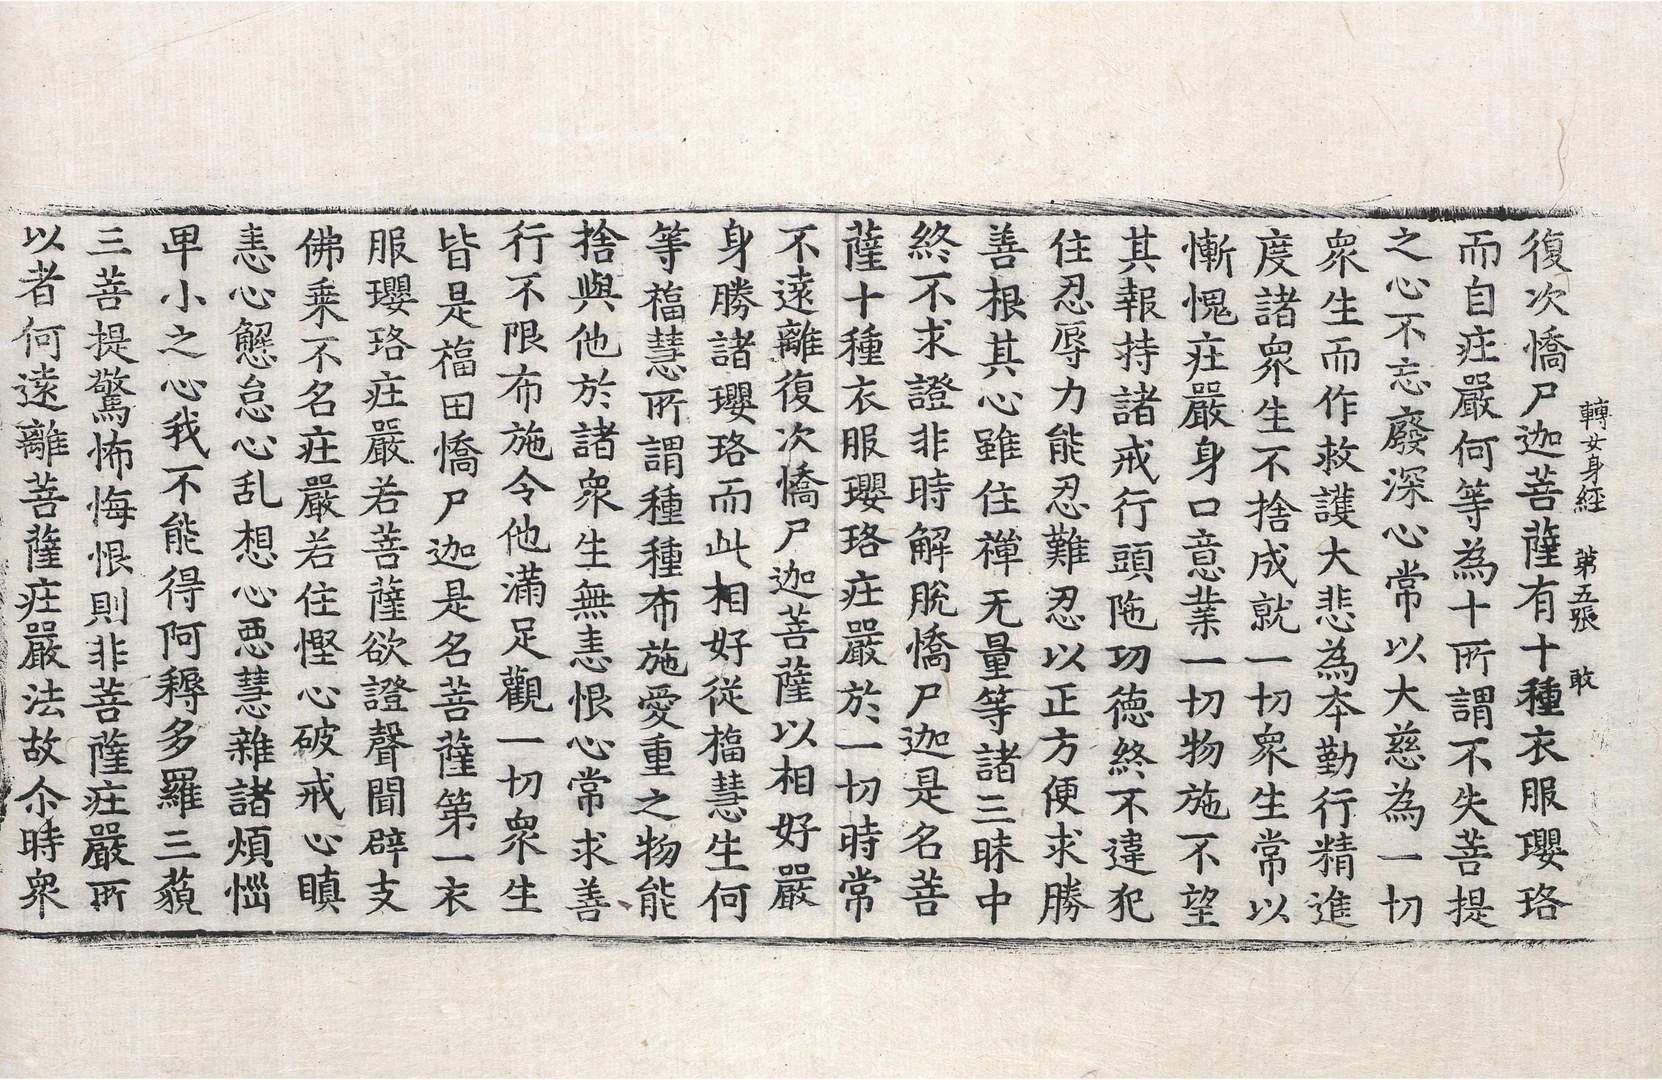 轉女身經 第五張 敢
復次憍尸迦菩薩有十種衣服瓔珞
而自庄嚴何等為十所謂不失菩提
之心不忘廢深心常以大慈為一切
衆生而作救護大悲為夲勤行精進
度諸衆生不捨成就一切衆生常以
慚愧庄嚴身口意業一切物施不望
其報持諸戒行頭陁功德終不違犯
住忍辱力能忍難忍以正方便求勝
善根其心雖住禪无量等諸三昧中
終不求證非時解脫憍尸迦是名菩
薩十種衣服瓔珞庄嚴於一切時常
不遠離復次憍尸迦菩薩以相好嚴
身勝諸瓔珞而此相好從福慧生何
等福慧所謂種種布施愛重之物能
捨與他於諸衆生無恚恨心常求善
行不限布施令他滿足觀一切衆生
皆是福田憍尸迦是名菩薩第一衣
服瓔珞庄嚴若菩薩欲證聲聞辟支
佛乗不名庄嚴若住慳心破戒心瞋
恚心懈怠心乱想心悪慧雜諸煩惱
卑小之心我不能得阿耨多羅三藐
三菩提驚怖悔恨則非菩薩庄嚴所
以者何遠離菩薩庄嚴法故尒時衆